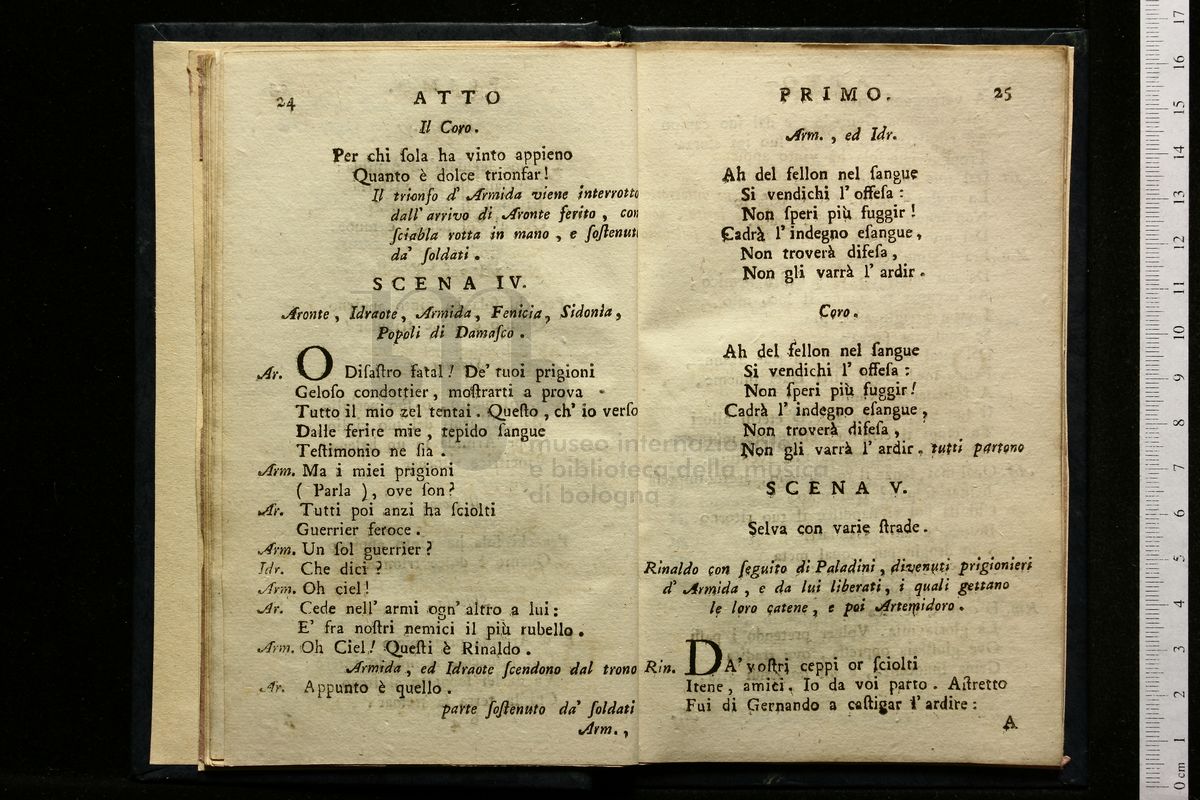 24 ATTO
Il Coro.
Per chi ſola ha vinto appieno
Quanto è dolce trionfar!
Il trionfo d' Armida viene interrotto
dall' arrivo di Aronte ferito, con
ſciabla rotta in mano, e ſoſtenut
da' ſoldati.
SCENA IV.
Aronte, Idraote, Armida, Fenicia, Sidonia,
Popoli di Damaſco.
Ar. O Diſaſtro fatal! De' tuoi prigioni
Geloſo condottier, moſtrarti a prova
Tutto il mio zel tentai. Queſto, ch' io verſo
Dalle ferite mie, tepido ſangue
Teſtimonio ne ſia.
Arm. Ma i miei prigioni
( Parla ), ove ſon?
Ar. Tutti poi anzi ha ſciolti
Guerrier feroce.
Arm. Un ſol guerrier?
Idr. Che dici?
Arm. Oh ciel!
Ar. Cede nell' armi ogn' altro a lui:
E' fra noſtri nemici il più rubello.
Arm. Oh Ciel! Queſti è Rinaldo.
Armida, ed Idraote ſcendono dal trono
Ar. Appunto è quello.
parte ſoſtenuto da' ſoldati
Arm.,
PRIMO. 25
Arm., ed Idr.
Ah del fellon nel ſangue
Si vendichi l' offeſa:
Non ſperi più fuggir!
Cadrà l' indegno eſangue,
Non troverà difeſa,
Non gli varrà l' ardir.
Coro.
Ah del fellon nel ſangue
Si vendichi l' offeſa:
Non ſperi più fuggir!
Cadrà l' indegno eſangue,
Non troverà difeſa,
Non gli varrà l' ardir. tutti partono
SCENA V.
Selva con varie ſtrade.
Rinaldo con ſeguito di Paladini, divenuti prigionieri
d' Armida, e da lui liberati, i quali gettano
le loro catene, e poi Artemidoro.
Rin. DA' voſtri ceppi or ſciolti
Itene, amici. Io da voi parto. Aſtretto
Fui di Gernando a caſtigar l' ardire:
A
museo internazionale
e biblioteca della musica
di bologna
0 cm 1 2 3 4 5 6 7 8 9 10 11 12 13 14 15 16 17